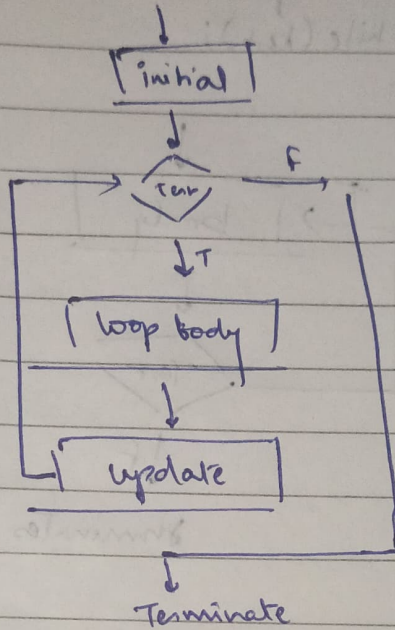 initial
Test
F
T
loop body
update
Terminate